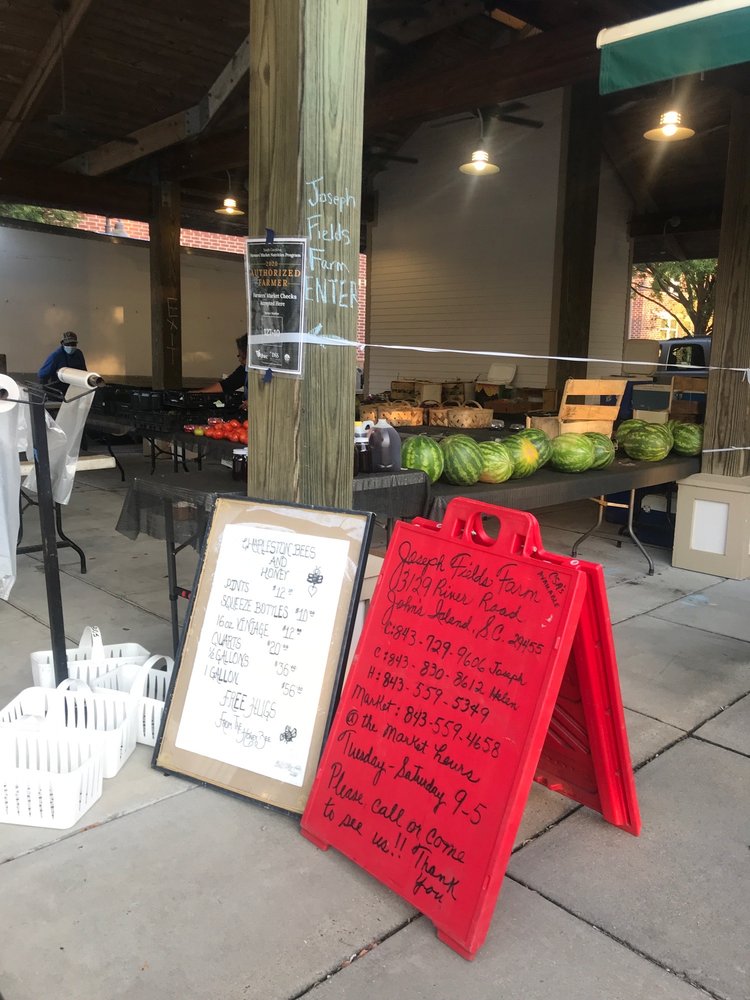 Joseph
Fields
Farm
ENTER
South Carolina
Farmers' Market Nutrition Program
2020
AUTHORIZED
FARMER
Farmers' Market Checks
Accepted Here
EXIT
CHARLESTON BEES
AND
HONEY
PINTS $12.00
SQUEEZE BOTTLES $10.00
16oz VINTAGE $12.00
QUARTS $20.00
½ GALLONS $36.00
1 GALLON $56.00
FREE HUGS
FROM THE HONEY BEE
Joseph Fields Farm
CSA's
AVAILABLE
3129 River Road
Johns Island, S.C. 29455
C:843-729-9606 Joseph
C:843-830-8612 Helen
H:843-559-5349
Market: 843-559-4658
@ the Market hours
Tuesday-Saturday 9-5
Please call or come
to see us!! Thank
You